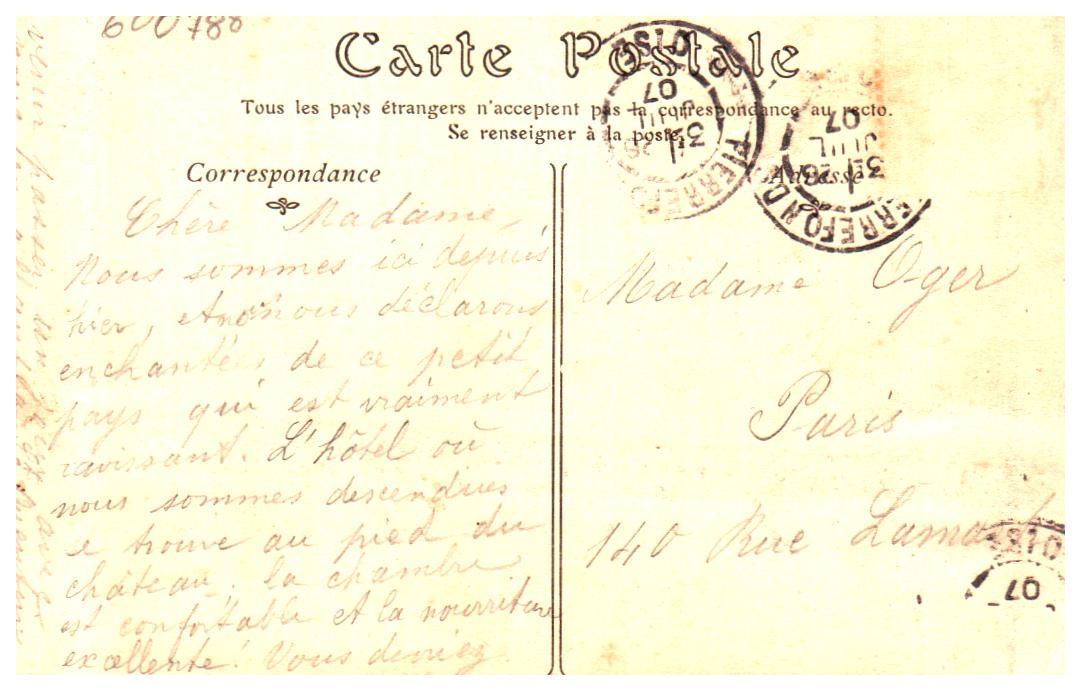 600788
Carte Postale
Tous les pays étrangers n'acceptent pas la correspondance au recto.
Se renseigner à la poste.
Correspondance
Chère Madame,
Nous sommes ici depuis
hier, et nous déclarons
enchantées de ce petit
pays qui est vraiment
ravissant. L'hôtel où
nous sommes descendues
se trouve au pied du
château, la chambre
est confortable et la nourriture
excellente! Vous devriez
venir passer
Adresse
Madame Oger
Paris
140 Rue
PIERREFONDS
OISE
31
JUIL
07
PIERREFONDS
31
JUIL
07
OISE
07